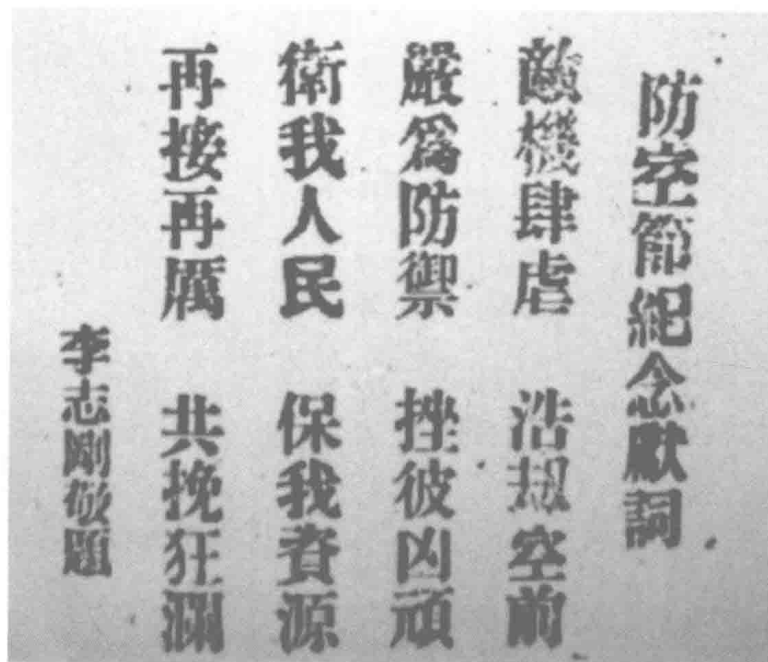 防空節紀念獻詞
敵機肆虐　浩劫空前
嚴為防禦　挫彼凶頑
衛我人民　保我資源
再接再厲　共挽狂瀾
李志剛敬題